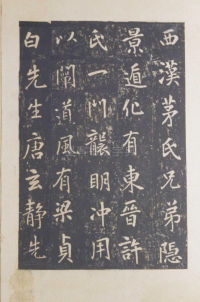 西漢茅氏兄弟隱
景遁化有東晉許
氏一門襲明沖用
以闡道風有梁貞
白先生唐玄靜先